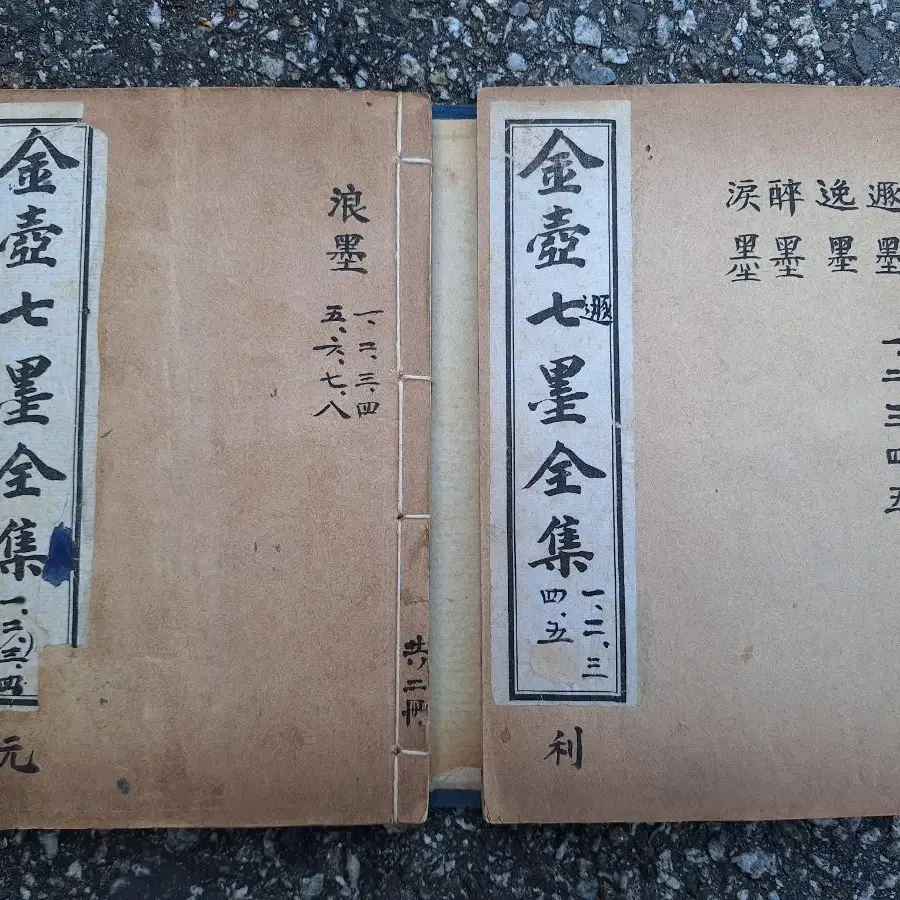 金壺七墨全集
一、二、三、四
元
浪墨
一、二、三、四
五、六、七、八
共、二冊.
金壺七墨全集
遯
一、二、三
四、五
利
遯墨 一二三四五
逸墨
醉墨
淚墨